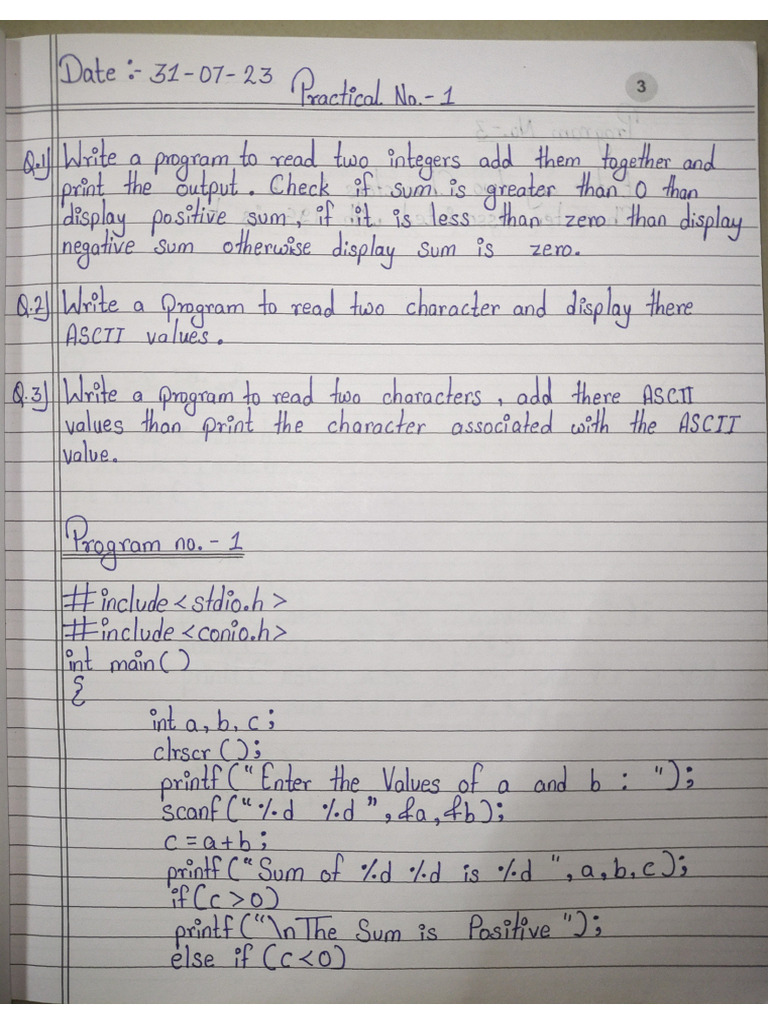 Date :- 31-07-23
Practical No.- 1
3
Q.1) Write a program to read two integers add them together and
print the output. Check if sum is greater than 0 than
display positive sum, if it is less than zero than display
negative sum otherwise display sum is zero.
Q.2) Write a Program to read two character and display there
ASCII values.
Q.3) Write a program to read two characters, add there ASCII
values than print the character associated with the ASCII
value.
Program no. - 1
#include <stdio.h>
#include <conio.h>
int main()
{
int a, b, c;
clrscr();
printf("Enter the Values of a and b : ");
scanf("%d %d", &a, &b);
c = a + b;
printf("Sum of %d %d is %d ", a, b, c);
if (c > 0)
printf("\nThe Sum is Positive");
else if (c < 0)